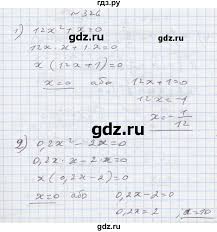 гдз.рф
№ 326
1) 12x² + x = 0
12x · x + 1 · x = 0
x (12x + 1) = 0
x = 0 або 12x + 1 = 0
12x = -1
x = - 1/12
2) 0,2x² - 2x = 0
0,2x · x - 2 · x = 0
x (0,2x - 2) = 0
x = 0 або 0,2x - 2 = 0
0,2x = 2, x = 10
гдз.рф